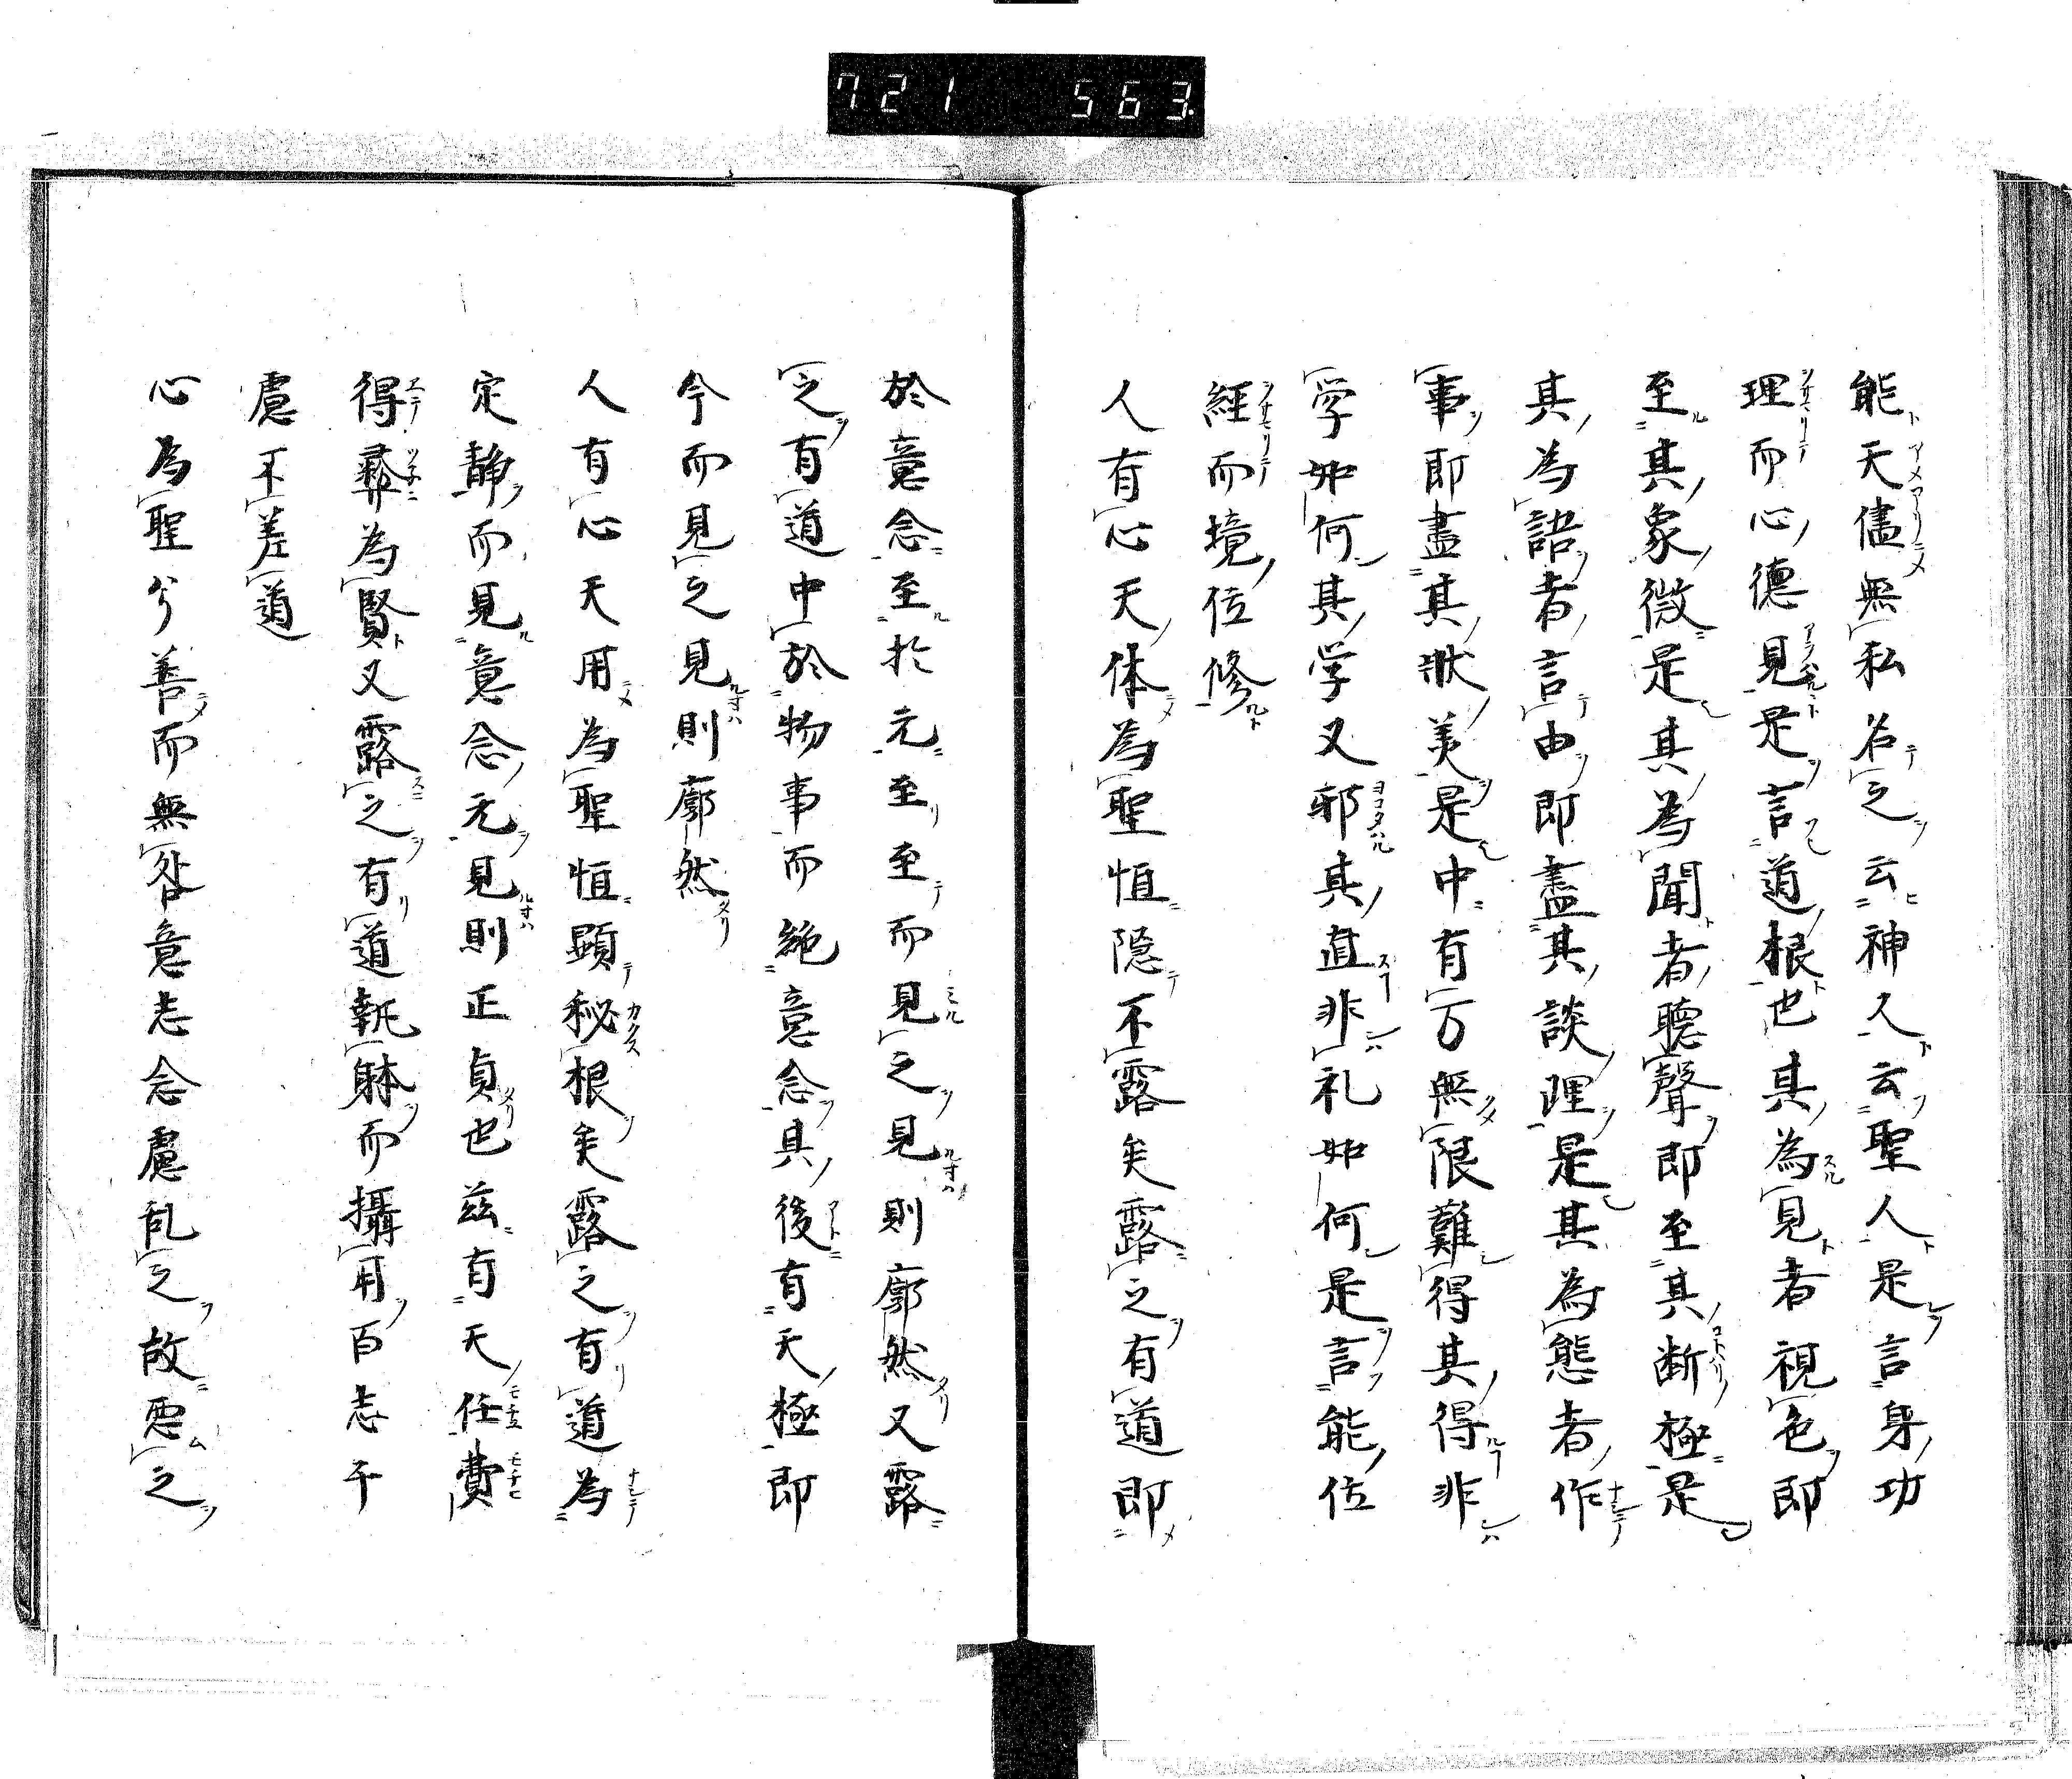 721 563
能天儘無私名之云神人云聖人是言身功
理而心德見是言道根也其為見者視色即
至其象微是其為聞者聴聲即至其断極是
其為語者言由即盡其談理是其為態者作
事即盡其狀美是中有万無限難得其得非
学如何其学又邪其直非礼如何是言能位
經而境位修
人有心天体為聖恒隠不露矣露之有道即
於意念至於元至至而見之見則廓然又露
之有道中於物事而絶意念具後有天極即
今而見之見則廓然
人有心天用為聖恒顕秘根矣露之有道為
定静而見意念元見則正貞也茲有天任費
得彛為賢又露之有道執躰而攝用百志千
慮不差道
心為聖兮善而無咎意志念慮乱之故悪之